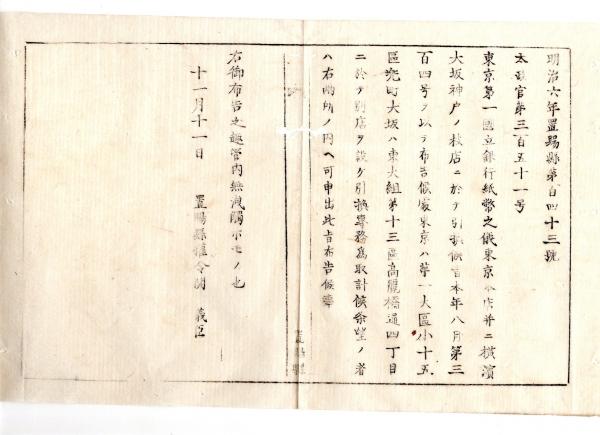 明治六年置賜縣第百四十三號
太政官第三百五十一号
東京第一國立銀行紙幣之儀東京本店并ニ橫濱
大坂神戸ノ枝店ニ於テ引換候旨本年八月第三
百四号ヲ以テ布告候處東京ハ第一大區小十五
區兜町大坂ハ東大組第十三區高麗橋通四丁目
ニ於テ別店ヲ設ケ引換專務為取計候条望ノ者
ハ右兩所ノ内ヘ可申出此旨布告候事
右御布告之趣管内無洩觸示モノ也
十一月十一日
置賜縣權令関 義臣
置賜縣